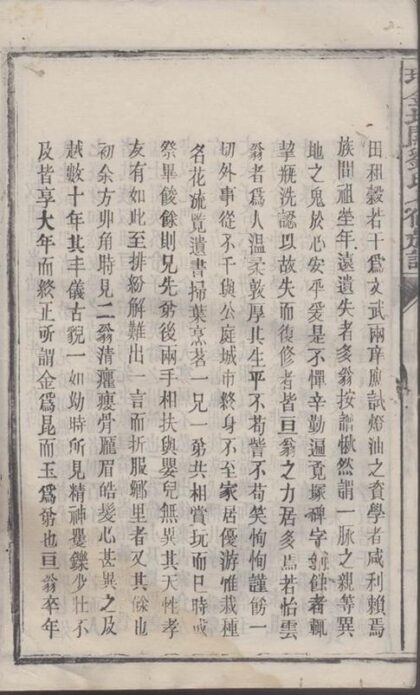 田租穀若干爲文武兩庠應試燈油之資學者咸利賴焉
族間祖塋年遠遺失者多翁按譜愀然謂一脉之親等異
地之鬼於心安乎爰是不憚辛勤遍覓塚碑字剝蝕者輒
挈瓶洗認以故失而復修者皆亘翁之力居多焉若怡雲
翁者爲人溫柔敦厚其生平不苟訾不苟笑恂恂謹飭一
切外事從不干與公庭城市終身不至家居優游惟栽種
名花流覽遺書掃葉烹茗一兄一弟共相賞玩而已時或
祭畢餕餘則兄先弟後兩手相扶與嬰兒無異其天性孝
友有如此至排紛解難出一言而折服鄉里者又其餘也
初余方丱角時見二翁清癯瘦骨龎眉皓髮心甚異之及
越數十年其丰儀古貌一如幼時所見精神矍鑠少壯不
及皆享大年而終正所謂金爲昆而玉爲弟也亘翁卒年